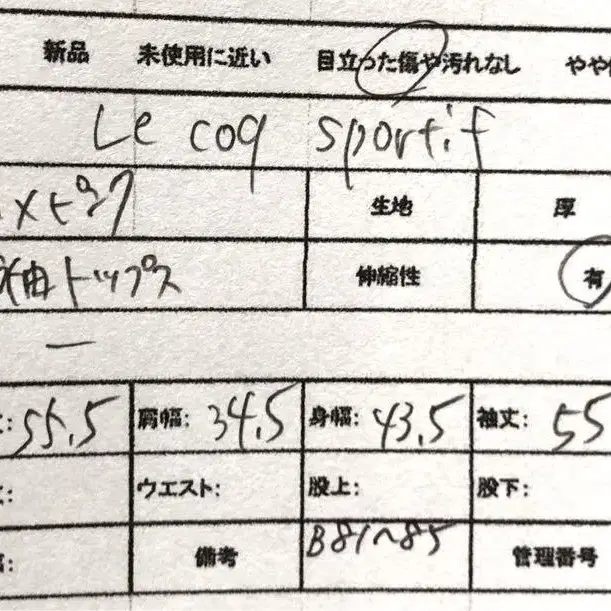 新品 未使用に近い 目立った傷や汚れなし やや
Le coq sportif
×ピンク 生地 厚
袖トップス 伸縮性 有
ー
: 55.5 肩幅: 34.5 身幅: 43.5 袖丈: 55
: ウエスト: 股上: 股下:
: 備考 B81~85 管理番号